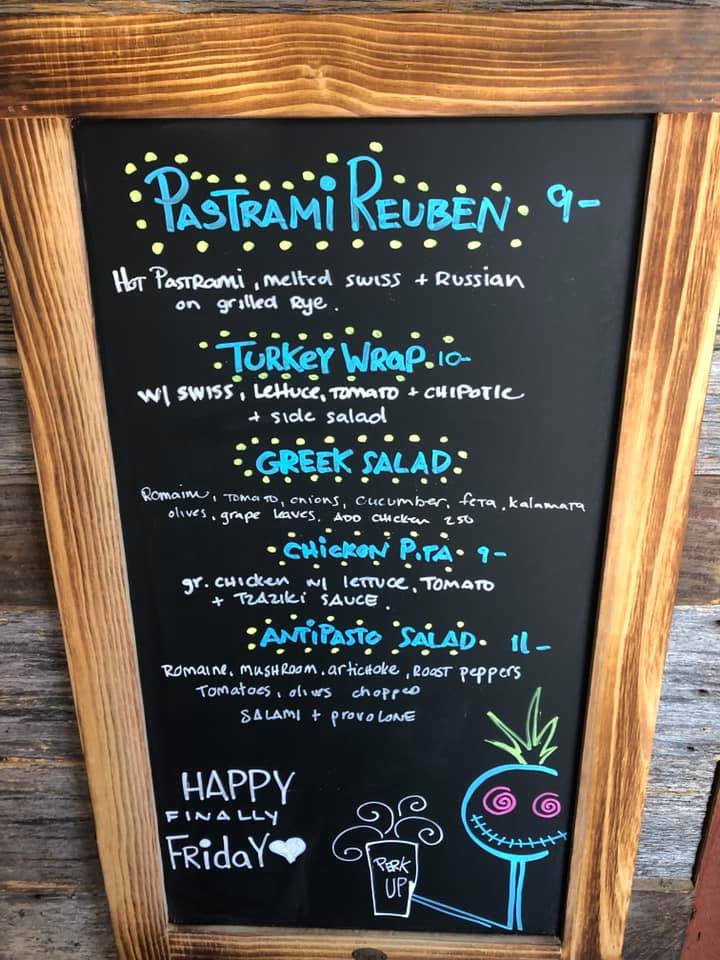 PASTRAMI REUBEN 9-
HOT PASTRAMI, melted swiss + RUSSIAN
on grilled Rye.
TURKEY WRAP 10-
W/ SWISS, LETTUCE, TOMATO + CHIPOTLE
+ side salad
GREEK SALAD
Romaine, TOMATO, onions, cucumber, feta, kalamata
olives, grape leaves. ADD CHICKEN 250
CHICKEN PITA 9-
gr. CHICKEN W/ LETTUCE, TOMATO
+ TZAZIKI SAUCE.
ANTIPASTO SALAD 11-
ROMAINE, MUSHROOM, artichoke, ROAST peppers
Tomatoes, olives chopped
SALAMI + provolone
HAPPY
FINALLY
FRIDAY
PERK
UP